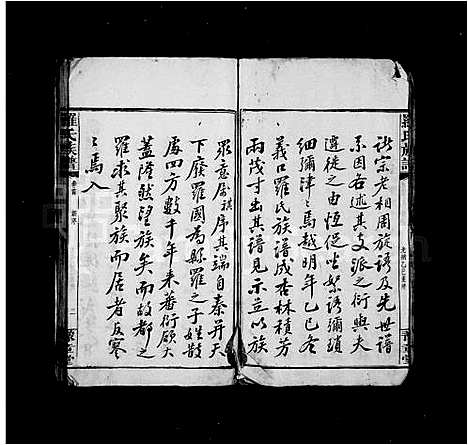 羅氏族譜
訴宗老相周旋諸及先世譜
系因各述其支派之衍與夫
遷徙之由恆促坐絮語彌瑣
細彌津津焉越明年乙巳冬
義口羅氏族譜成杏林積芳
兩茂才出其譜見示並以族
眾意屬序其端自秦并天
下廢羅國為縣羅之子姓散
處四方數千年來蕃衍碩大
蓋隆然望族矣而故都之
羅求其聚族而居者反寥
寥焉入
羅氏族譜
卷首
二
豫章堂